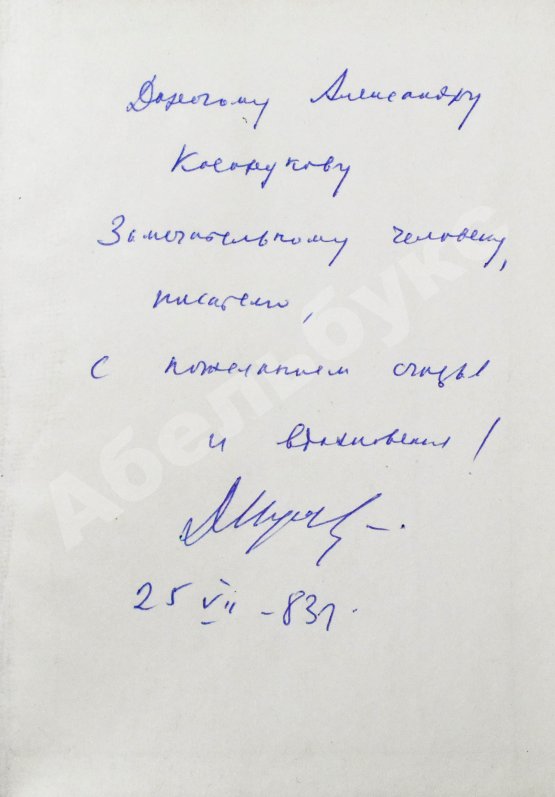 Дорогому Александру
Косорукову
Замечательному человеку,
писателю,
с пожеланием счастья
и вдохновения!
25 VII -83г.
Абельбукс